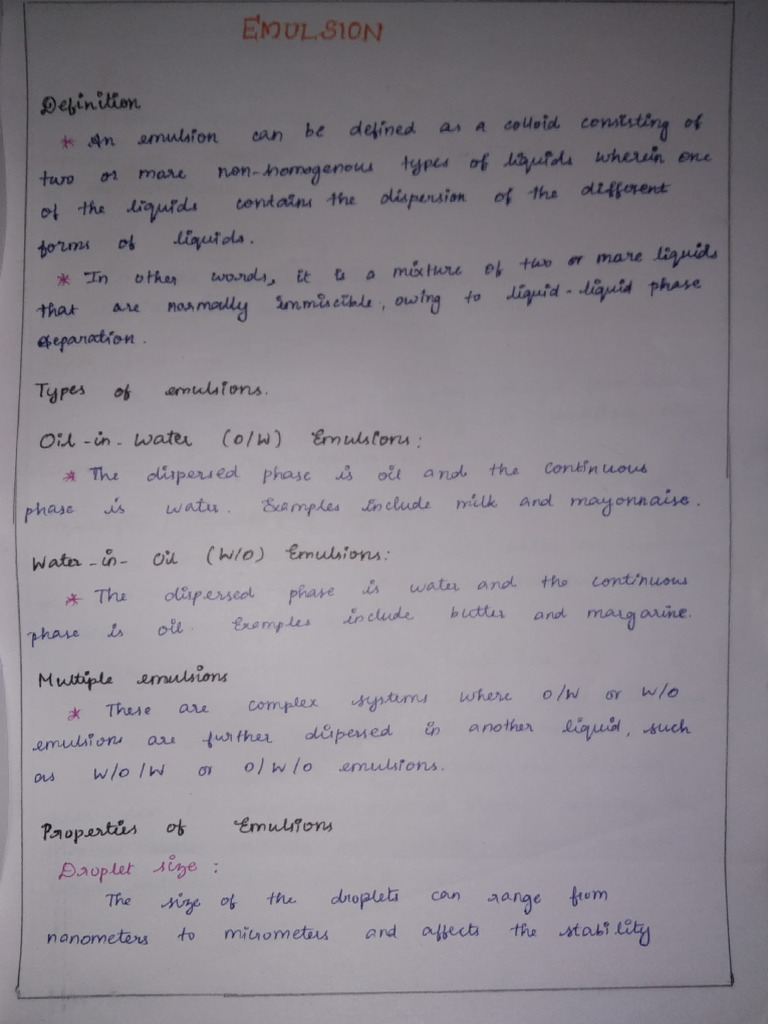 EMULSION
Definition
* An emulsion can be defined as a colloid consisting of
two or more non-homogenous types of liquids wherein one
of the liquids contains the dispersion of the different
forms of liquids.
* In other words, it is a mixture of two or more liquids
that are normally Immiscible, owing to liquid-liquid phase
separation.
Types of emulsions.
Oil-in-Water (O/W) Emulsions:
* The dispersed phase is oil and the continuous
phase is water. Examples include milk and mayonnaise.
Water-in-Oil (W/O) Emulsions:
* The dispersed phase is water and the continuous
phase is oil. Examples include butter and margarine.
Multiple emulsions
* These are complex systems where O/W or W/O
emulsions are further dispersed in another liquid, such
as W/O/W or O/W/O emulsions.
Properties of Emulsions
Droplet size:
The size of the droplets can range from
nanometers to micrometers and affects the stability